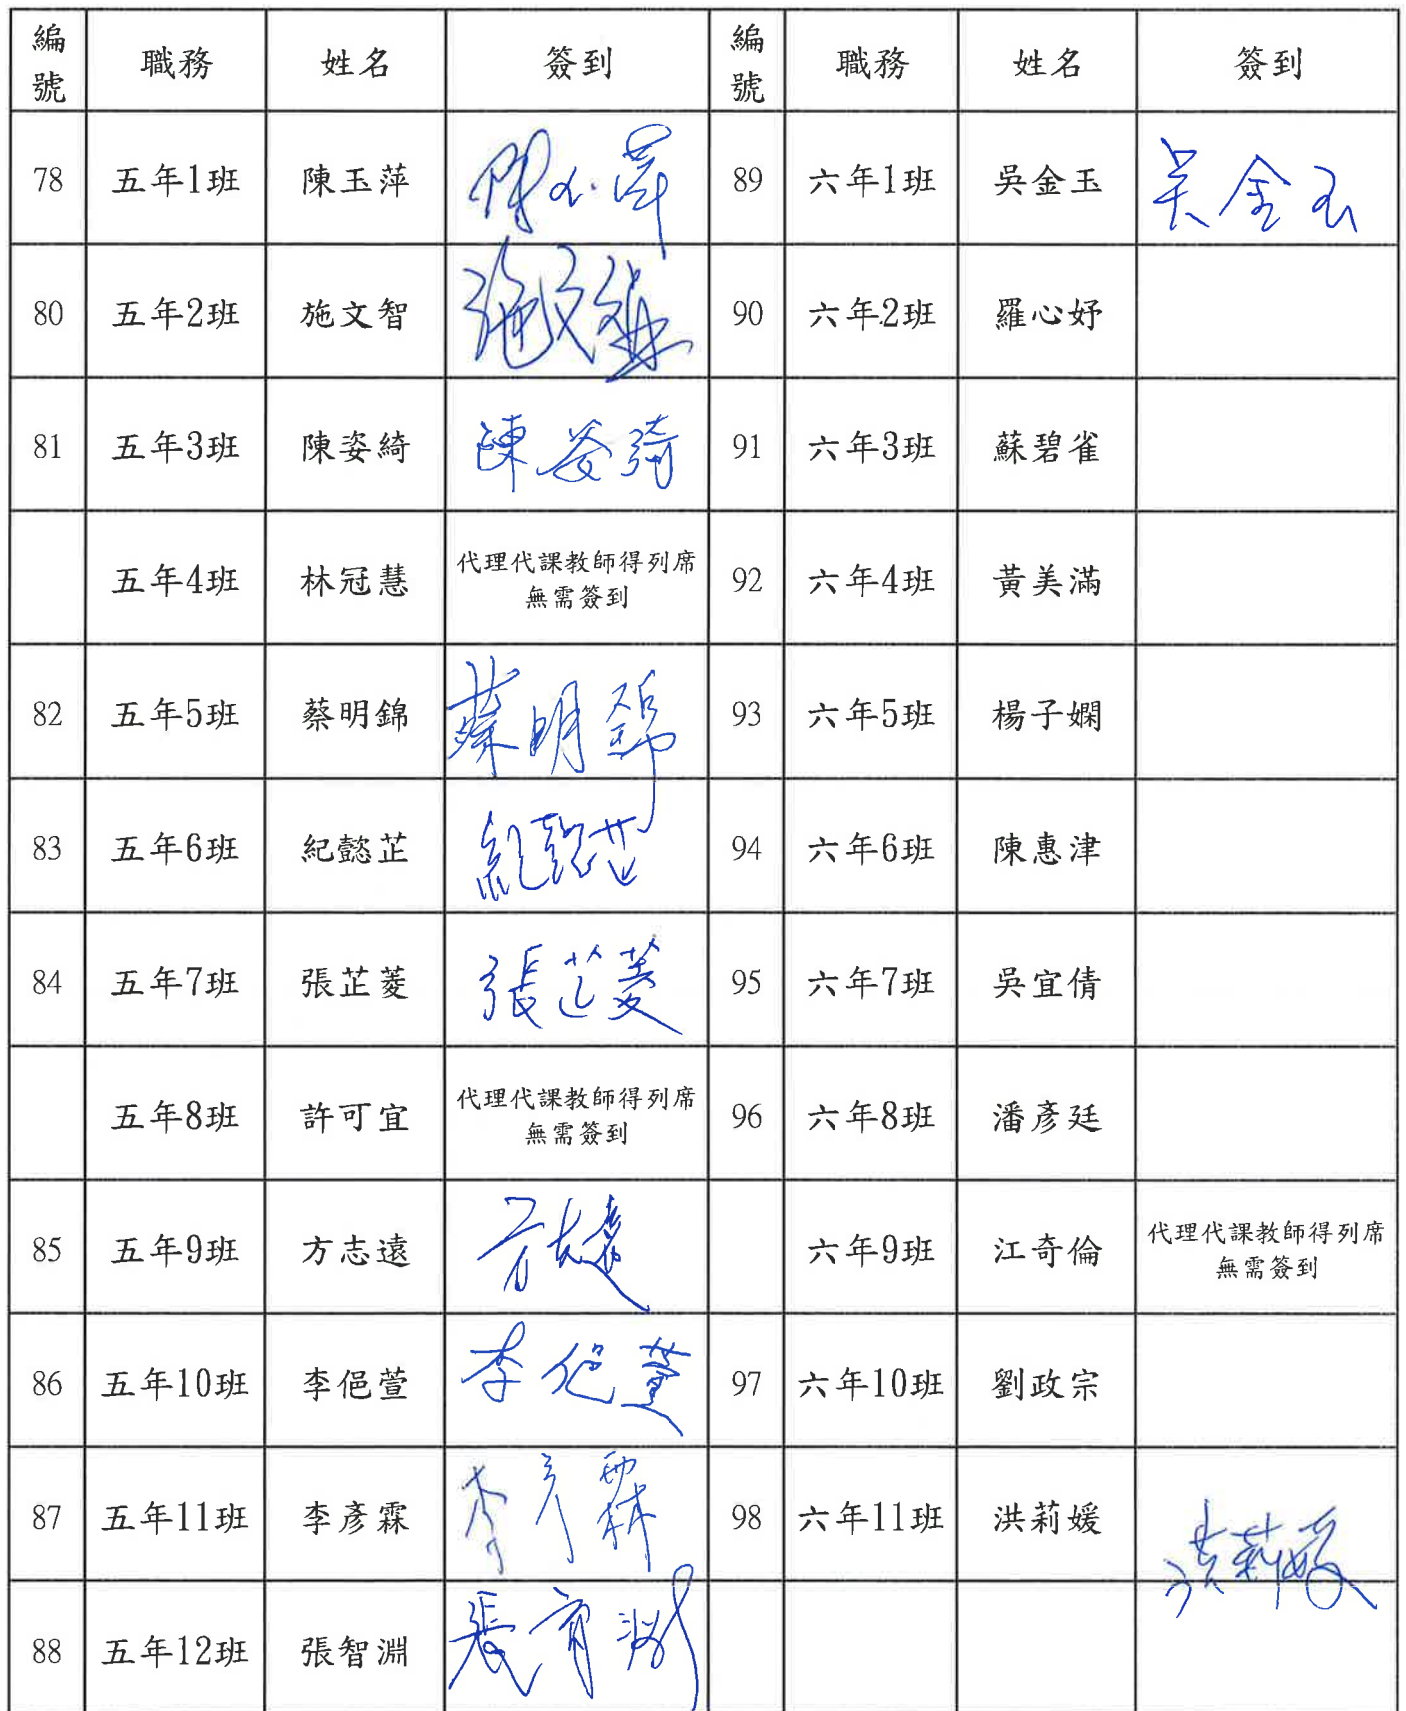 編號 職務 姓名 簽到 編號 職務 姓名 簽到
78 五年1班 陳玉萍 89 六年1班 吳金玉 吳金玉
80 五年2班 施文智 90 六年2班 羅心妤
81 五年3班 陳姿綺 陳姿綺 91 六年3班 蘇碧雀
五年4班 林冠慧 代理代課教師得列席 無需簽到 92 六年4班 黃美滿
82 五年5班 蔡明錦 蔡明錦 93 六年5班 楊子嫻
83 五年6班 紀懿芷 紀懿芷 94 六年6班 陳惠津
84 五年7班 張芷菱 張芷菱 95 六年7班 吳宜倩
五年8班 許可宜 代理代課教師得列席 無需簽到 96 六年8班 潘彥廷
85 五年9班 方志遠 方志遠 六年9班 江奇倫 代理代課教師得列席 無需簽到
86 五年10班 李俋萱 李俋萱 97 六年10班 劉政宗
87 五年11班 李彥霖 李彥霖 98 六年11班 洪莉媛 洪莉媛
88 五年12班 張智淵